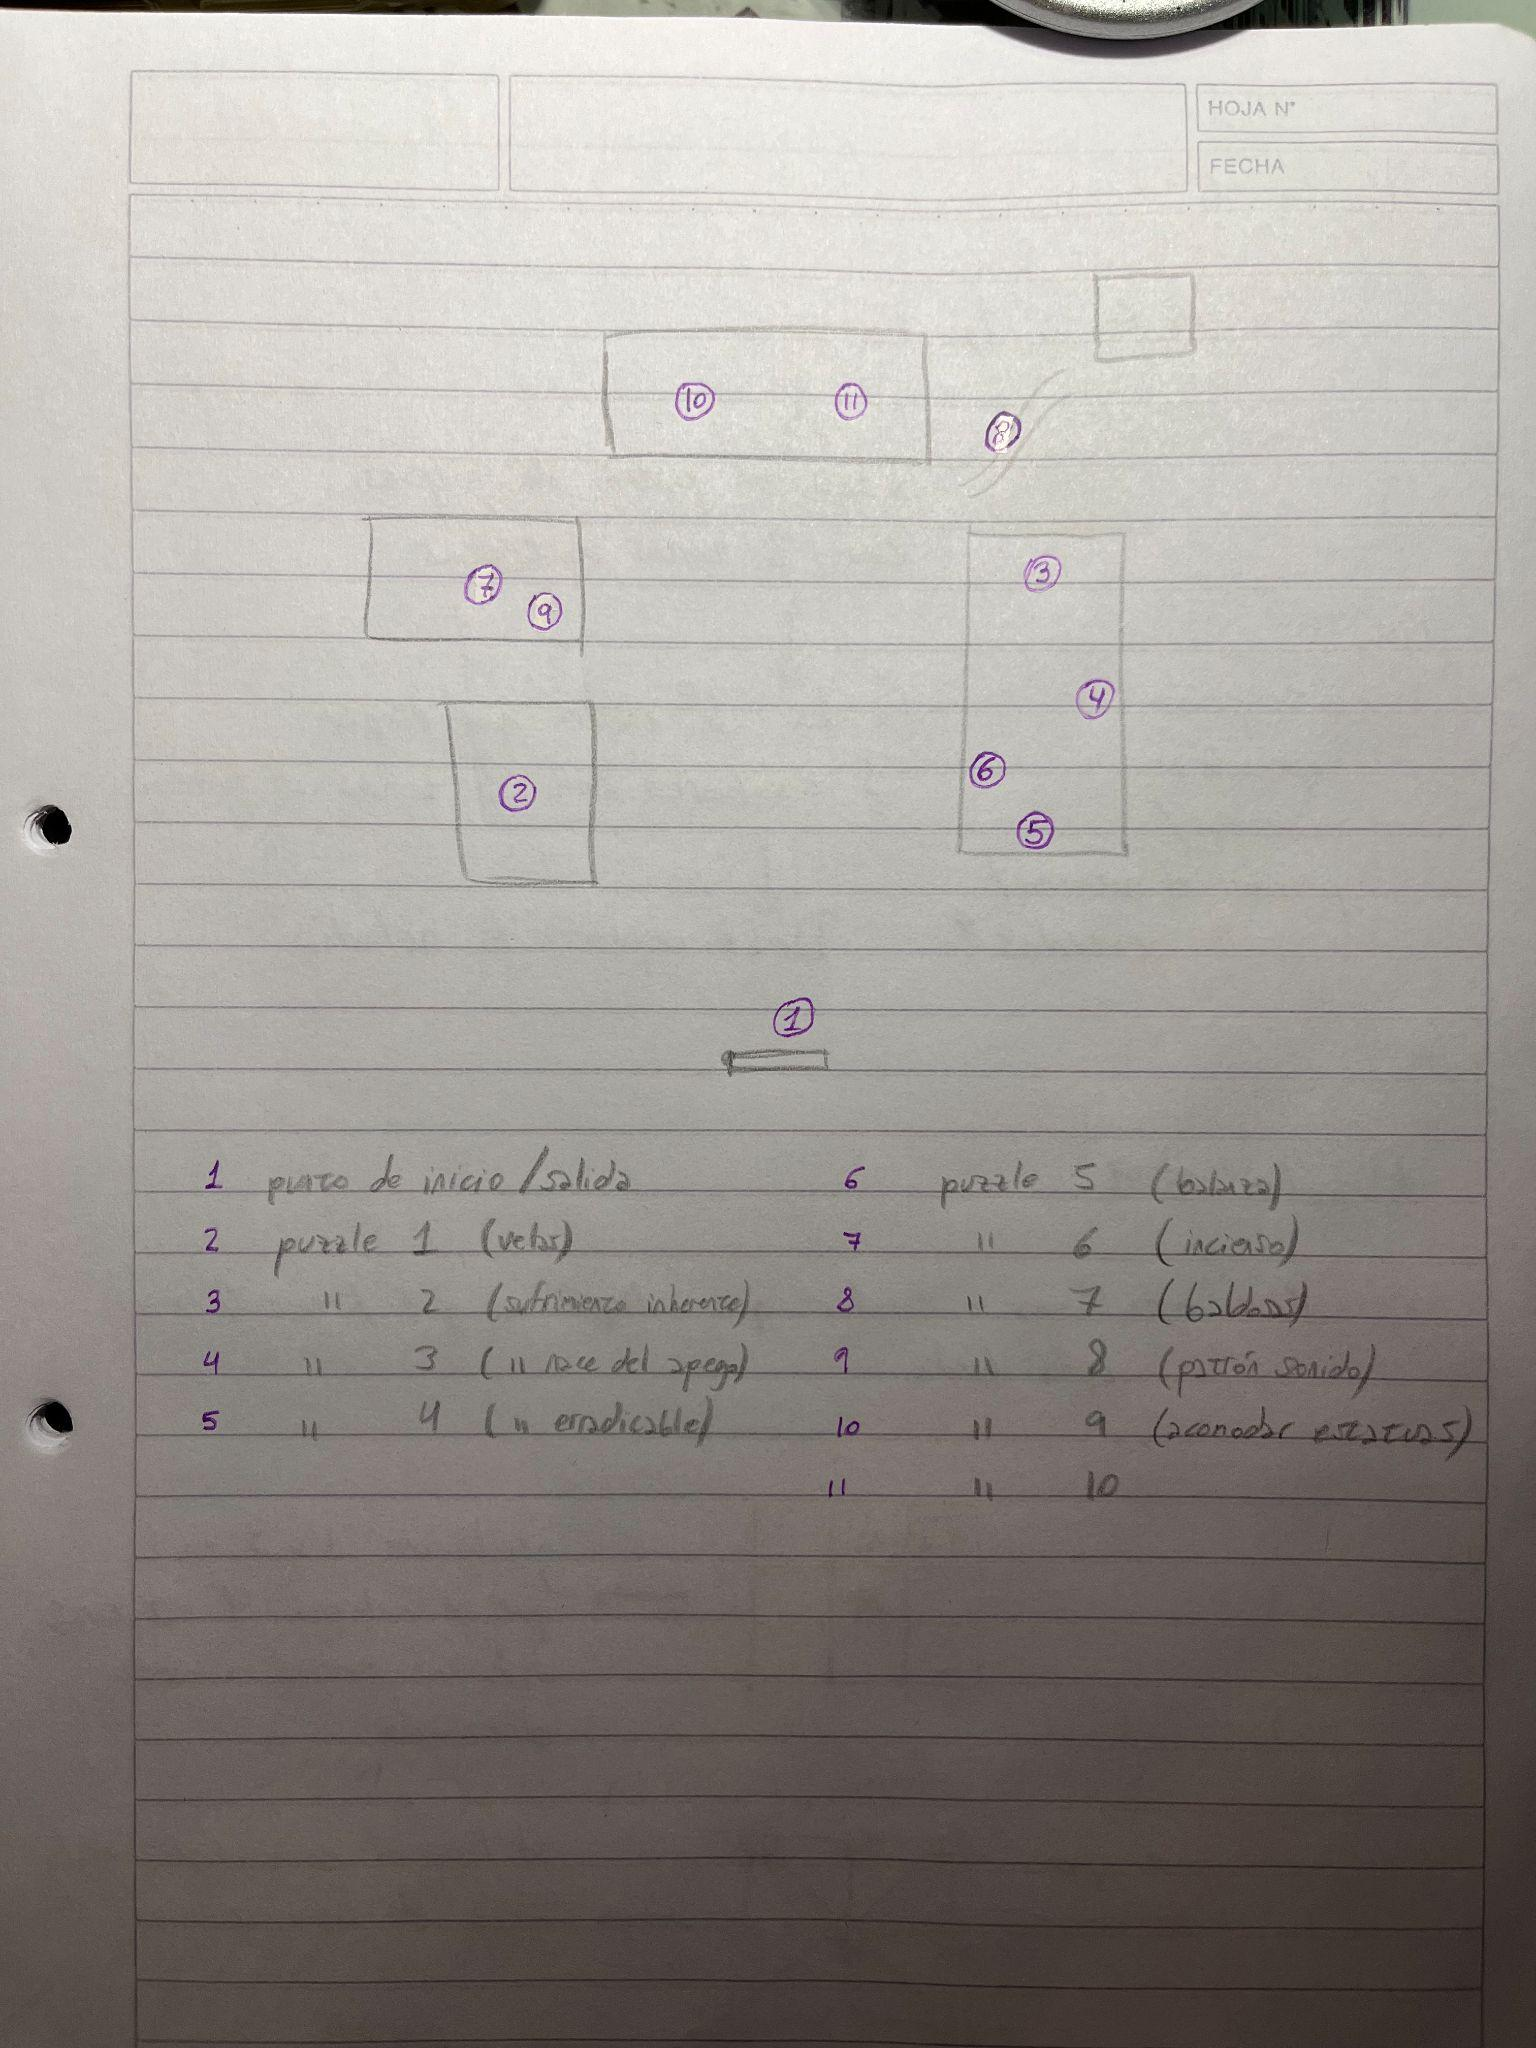 HOJA N°
FECHA
10 11
8
7
9
3
4
6
5
2
1
1 punto de inicio/salida
2 puzzle 1 (velas)
3 " 2 (sufrimiento inherente)
4 " 3 (" nace del apego)
5 " 4 (" erradicable)
6 puzzle 5 (balanza)
7 " 6 (incienso)
8 " 7 (baldosas)
9 " 8 (patrón sonido)
10 " 9 (acomodar estatuas)
11 " 10